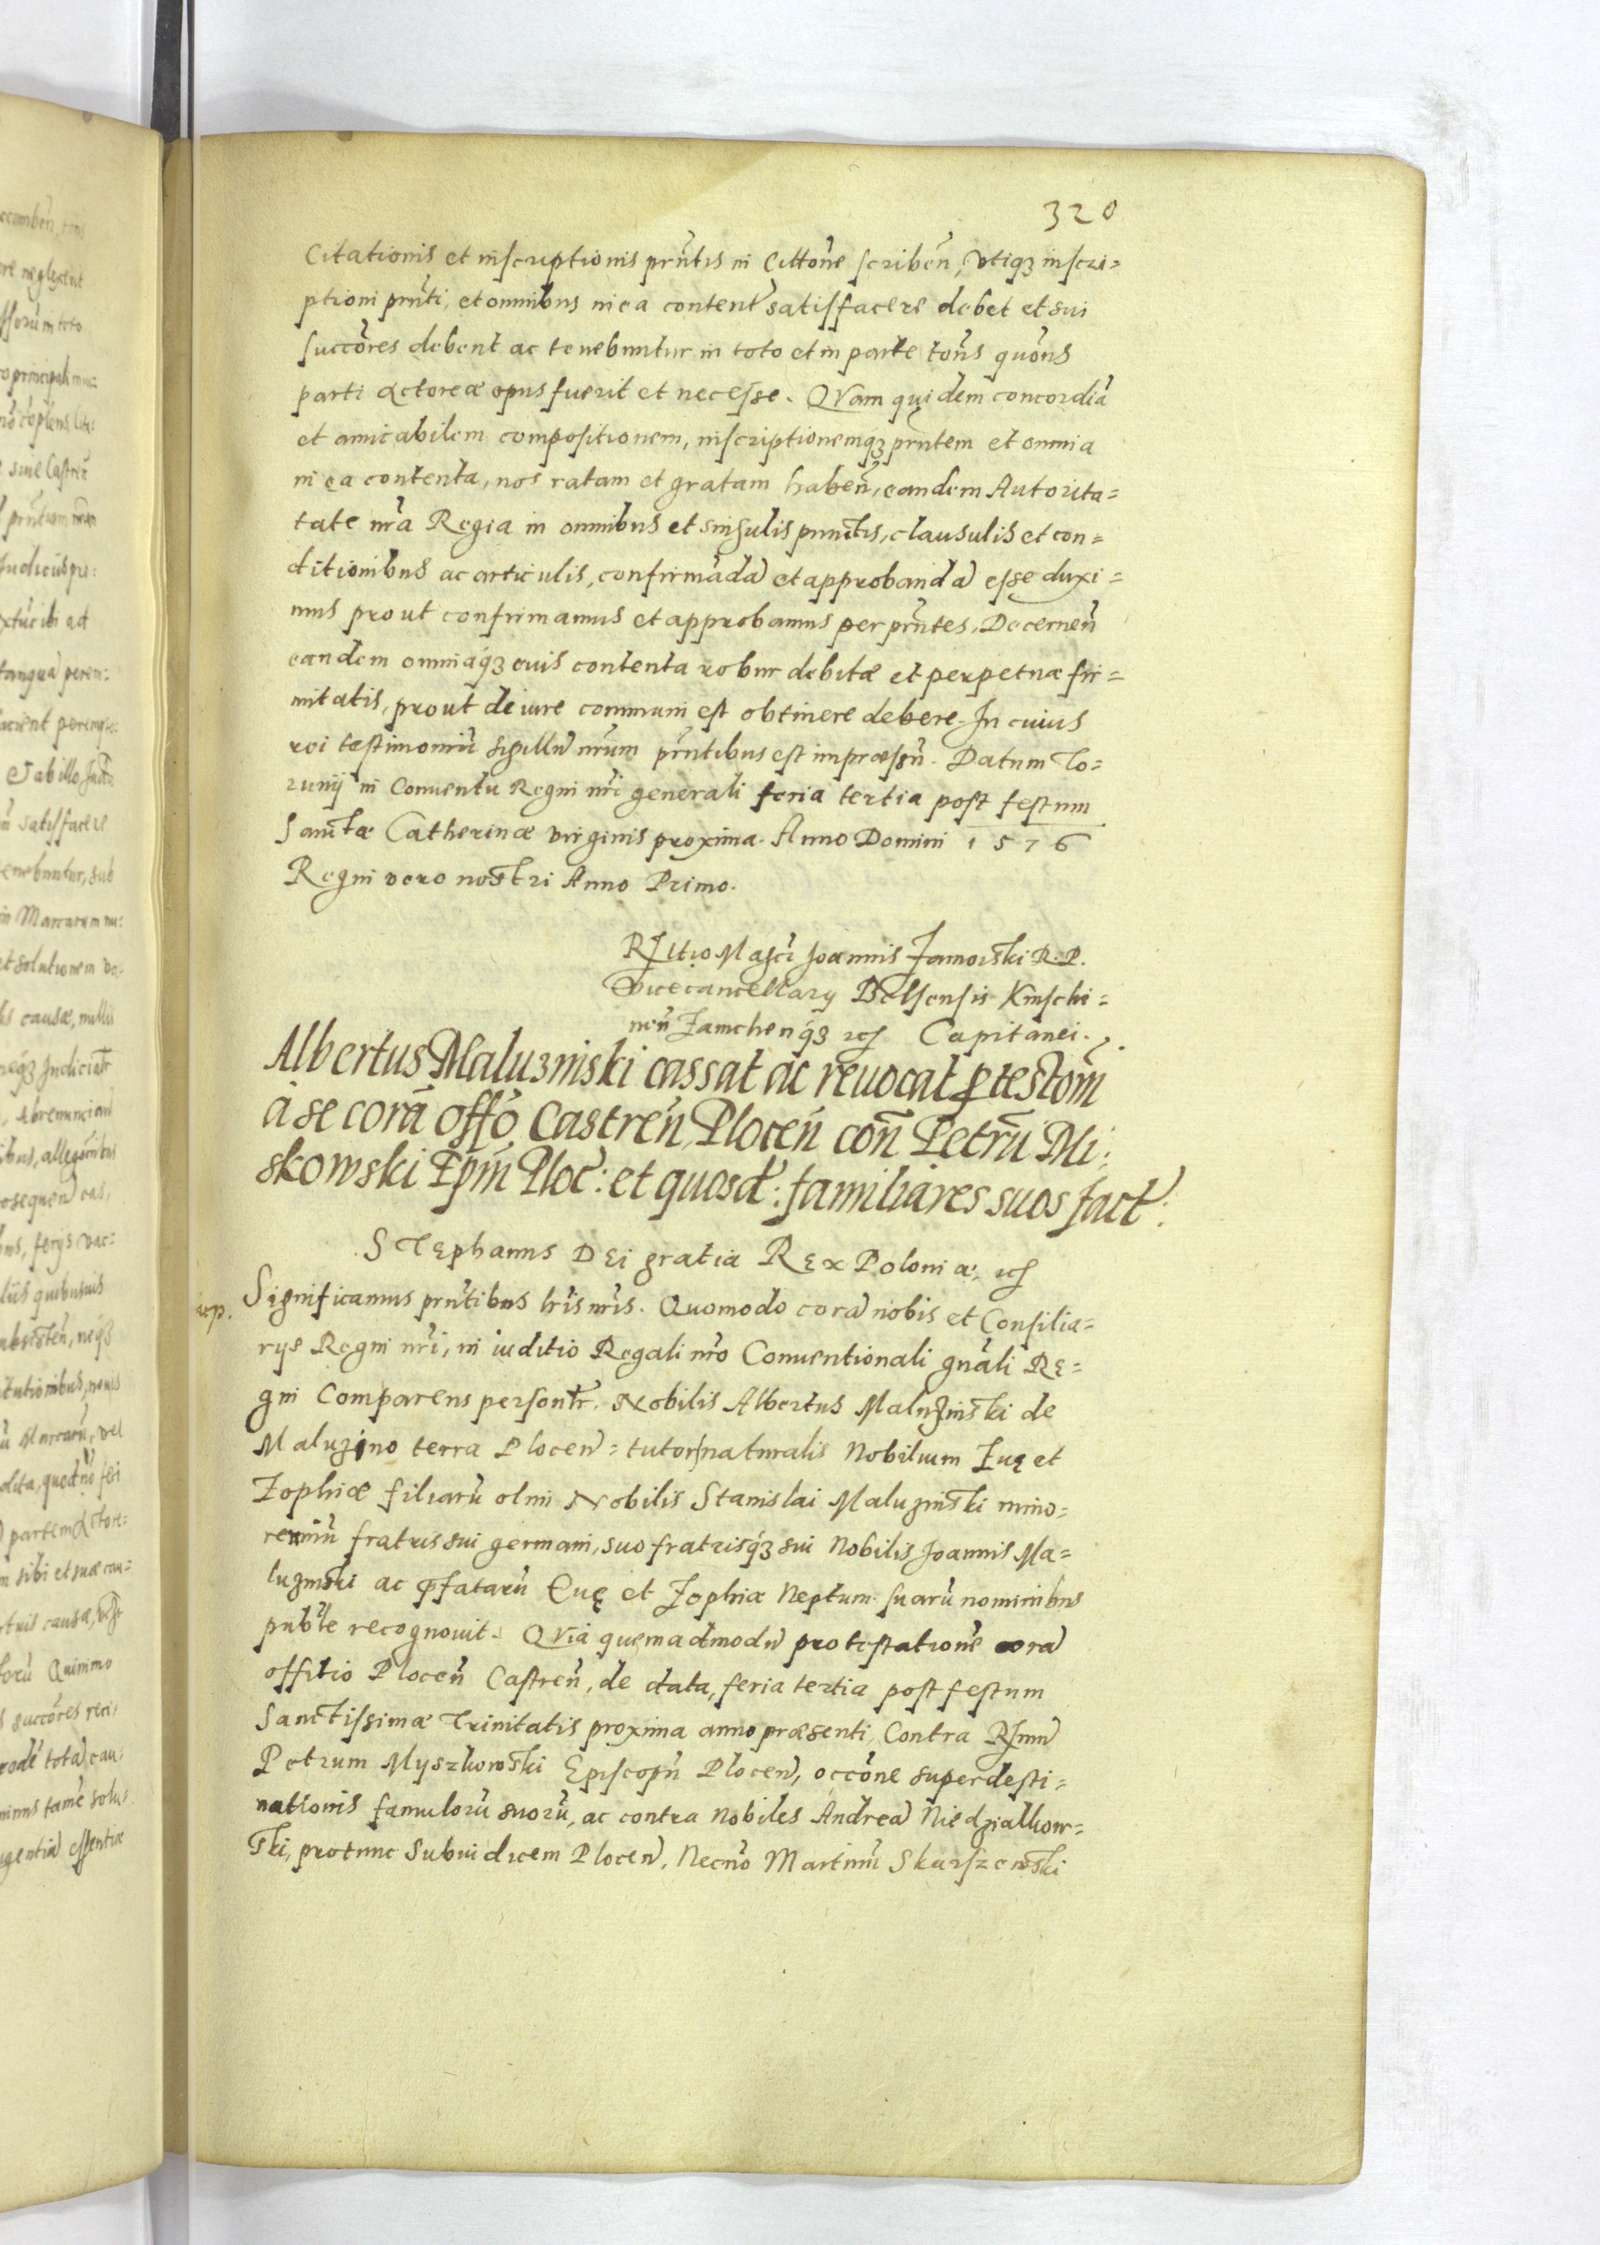 320
Citationis et inscriptionis prñtis in Cittoñe scribeñ, Vtiqꝫ inscri=
ptioni prñti, et omnibus in ea content̃ satisfacere debet et sui
succores debent ac tenebuntur in toto et in parte toñs quoñs
parti Actoreæ opus fuerit et necesse. QVam quidem concordiã
et amicabilem compositionem, inscriptionemqꝫ prñtem et omnia
in ea contenta, nos ratam et gratam habeñ, eandem Autorita=
tate nrã Regia in omnibus et singulis punctis, clausulis et con=
ditionibus ac articulis, confirmãdã et approbandã esse duxi=
mus prout confirmamus et approbamus per prñtes, Decerneñ
eandem omniaqꝫ euis contenta robur debitæ et perpetuæ fir=
mitatis, prout de iure communi est obtinere debere. In cuius
rei testimoniũ sigillũ nrũm prñtibus est impræsũ. Datum To=
runij in Conuentu Regni nrĩ generali feria tertia post festum
Sanctæ Catherinæ virginis proxima. Anno Domini 1576
Regni vero nostri Anno Primo.
Rltio Magci Joannis Zamoiski R. P.
Vicecancellarij Belsensis Kinschi=
neñ Zamchenqꝫ etc Capitanei.
Albertus Maluzniski cassat ac reuocat ꝓtestom̃
a se corã offo Castreñ Ploceñ coñ Petrũ Mi:
skowski Epm̃ Ploc̃: et quosd̃: familiares suos fact̃:
STephanus DEi gratia REx Poloniæ, etc
Significamus prñtibus lrĩs nrĩs. Quomodo corã nobis et Consilia=
rijs Regni nrĩ, in iuditio Regali nrõ Conuentionali gnãli RE=
gni Comparens personlr̃. Nobilis Albertus Maluzinski de
Maluzino terra Ploceñ= tutor naturalis Nobilium Euę et
Zophiæ filiarũ olmi Nobilis Stanislai Maluzinski mino=
renniũ fratris sui germani, suo fratrisqꝫ sui Nobilis Joannis Ma=
luzinski ac ꝓfatarũ Euę et Zophiæ Neptum suarũ nominibus
pub̃le recognouit. QVia quemadmodũ protestatioñe corã
offitio Ploceñ Castreñ, de data, feria tertia post festum
Sanctissimæ Trinitatis proxima anno præsenti, Contra Rsmũ
Petrum Myszkowski Episcopũ Ploceñ, occoñe superdesti=
nationis famulorũ suorũ, ac contra Nobiles Andreã Niedzialkow=
ski, protunc Subiudicem Ploceñ, Necnõ Martinũ Skarszewski